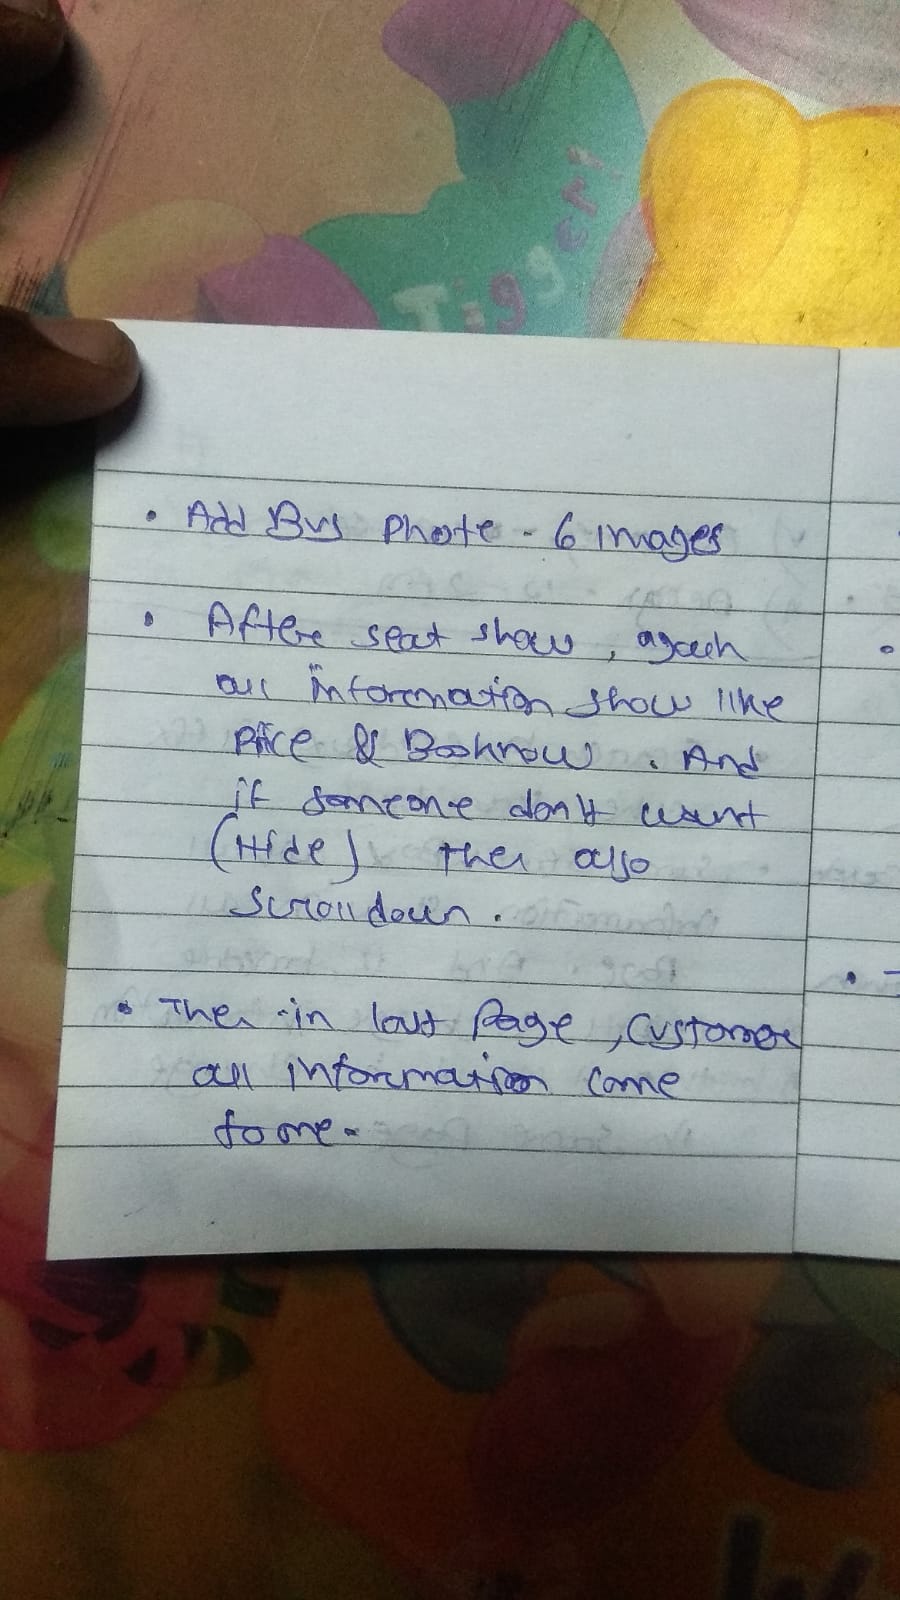 Tigger!
• Add Bus Phote - 6 images
• After seat show, again
all information show like
Price & Booknow. And
if someone don't want
(Hide) then also
Scroll down.
• Then in last Page, Customer
all information come
to me.